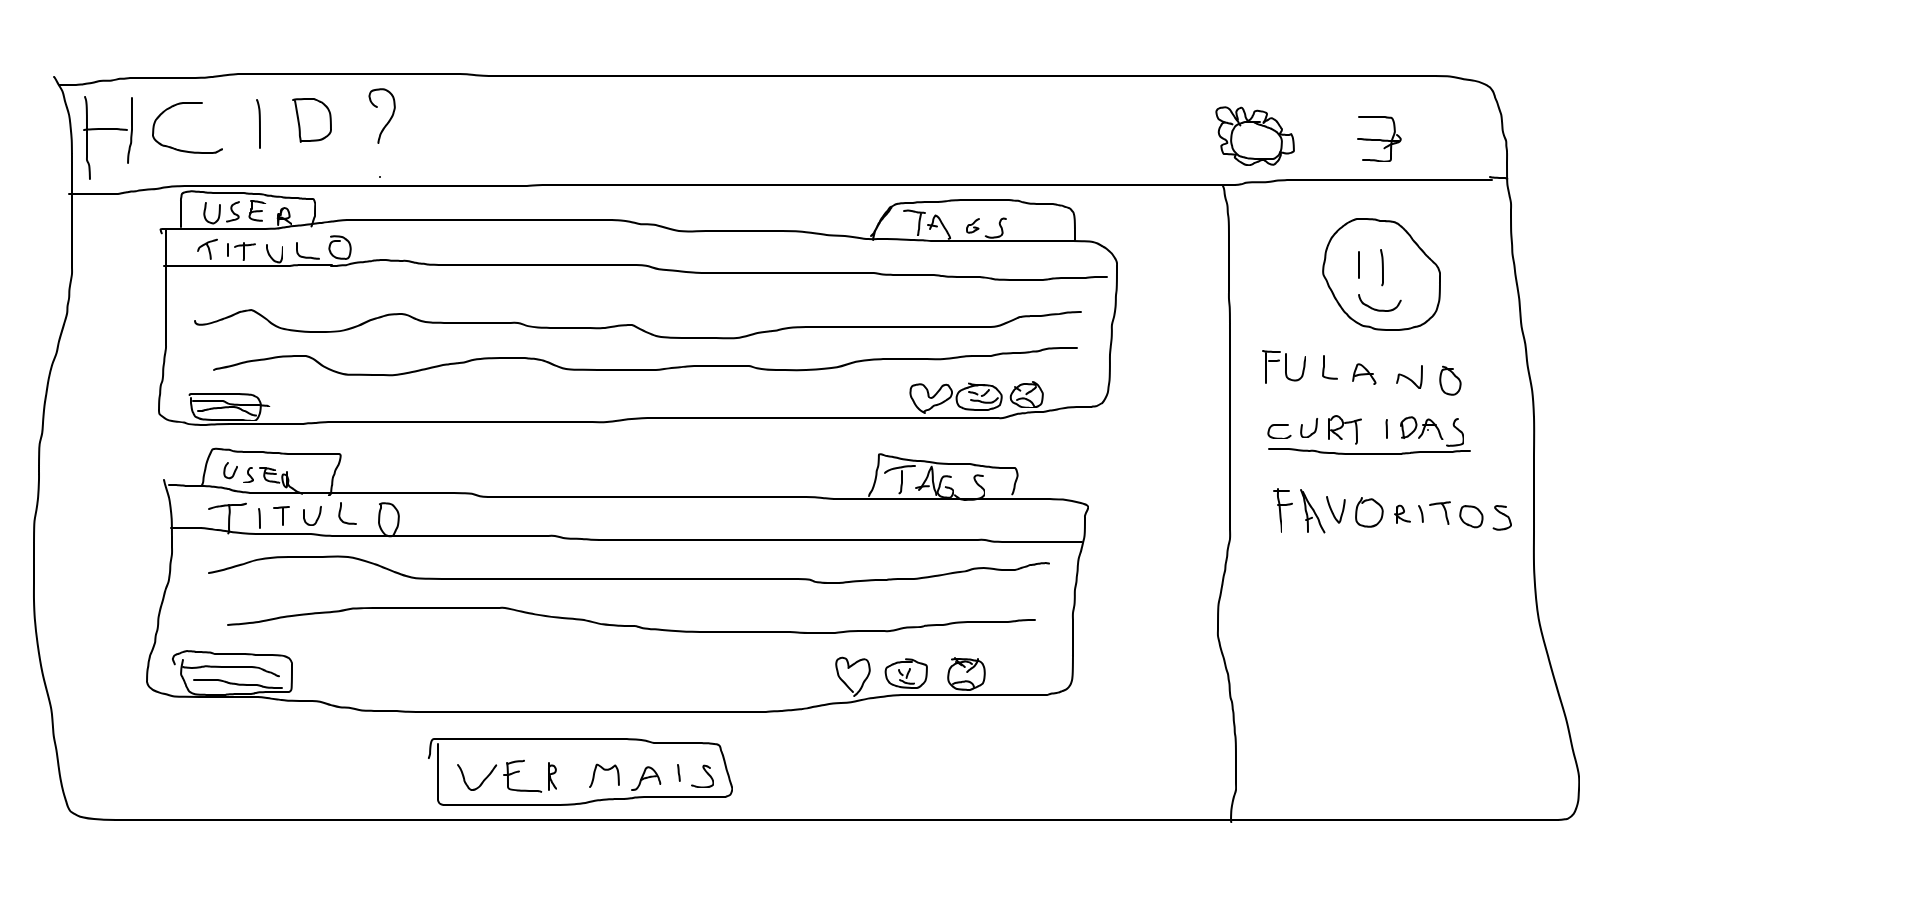 HCID?
USER TAGS
TITULO
USER TAGS
TITULO
VER MAIS
FULANO
CURTIDAS
FAVORITOS